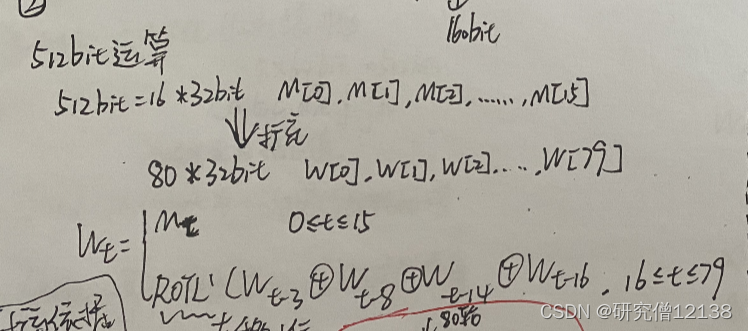 ②
160bit
512bit运算
512bit=16*32bit M[0], M[1], M[2], ......, M[15]
扩充
80*32bit W[0], W[1], W[2], ...., W[79]
Wt= Mt 0≤t≤15
ROTL¹(Wt-3⊕Wt-8⊕Wt-14⊕Wt-16, 16≤t≤79
80轮
CSDN @研究僧12138